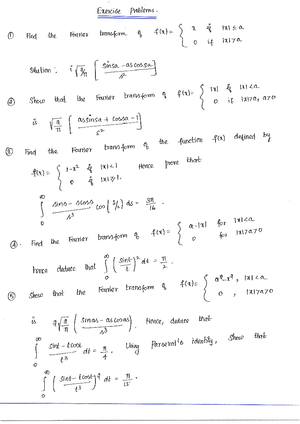 Exercise Problems.
① Find the Fourier transform of f(x) = { x if |x| ≤ a
0 if |x| > a
Solution : i √(2/π) [ (sin sa - as cos sa) / s² ]
② Show that the Fourier transform of f(x) = { |x| if |x| < a
0 if |x| > a, a > 0
is √(2/π) [ (as sin sa + cos sa - 1) / s² ]
③ Find the Fourier transform of the function f(x) defined by
f(x) = { 1 - x² if |x| < 1
0 if |x| ≥ 1. Hence prove that
∫₀^∞ (sin s - s cos s) / s³ cos (s/2) ds = 3π/16.
④. Find the Fourier transform of f(x) = { a - |x| for |x| < a
0 for |x| > a > 0
hence deduce that ∫₀^∞ (sin t / t)² dt = π/2.
⑤ Show that the Fourier transform of f(x) = { a² - x², |x| < a
0, |x| > a > 0
is 2√(2/π) [ (sin as - as cos as) / s³ ]. Hence, deduce that
∫₀^∞ (sin t - t cos t) / t³ dt = π/4. Using Parseval's identity, show that
∫₀^∞ ( (sin t - t cos t) / t³ )² dt = π/15.